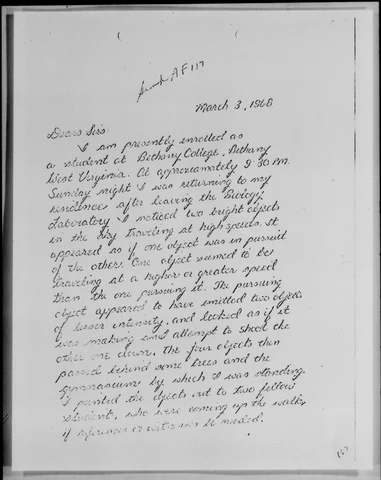 AF 117
March 3, 1968
Dears Sirs:
I am presently enrolled as
a student at Bethany College, Bethany
West Virginia. At approximately 9:30 P.M.
Sunday night I was returning to my
residence after leaving the Biology
Laboratory I noticed two bright objects
in the sky traveling at high speeds. It
appeared as if one object was in pursuit
of the other. One object seemed to be
traveling at a higher or greater speed
than the one pursuing it. The pursuing
object appeared to have emitted two objects
of lesser intensity, and looked as if it
was making an attempt to shoot the
other one down, the four objects then
passed behind some trees and the
gymnasium by which I was standing.
I pointed the objects out to two fellow
student, who were coming up the walk,
if references or witnesses be needed.